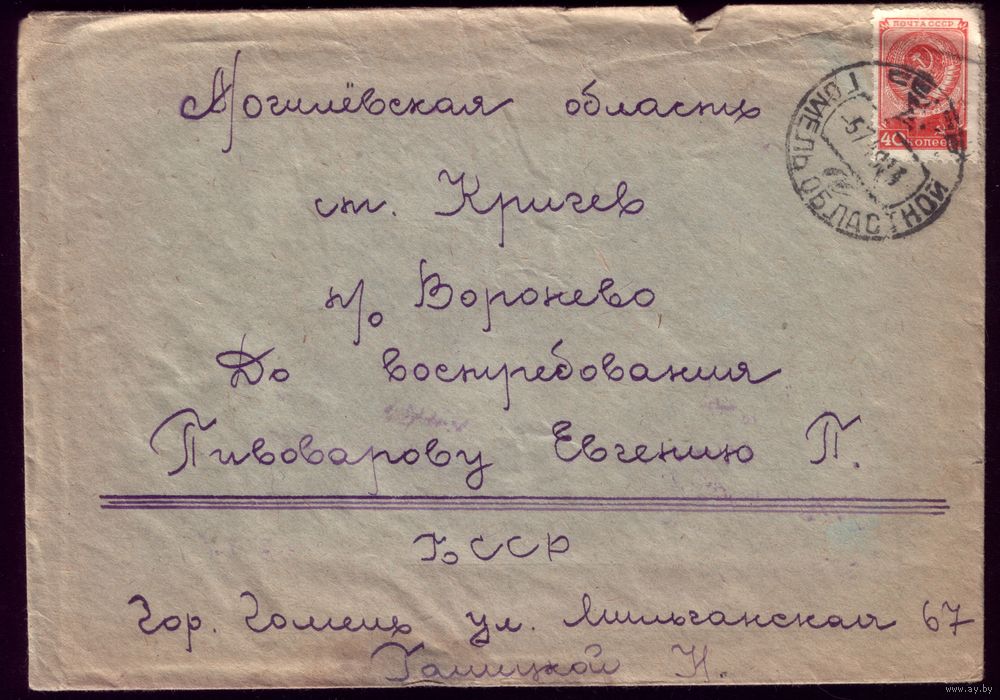 ПОЧТА СССР
40 КОПЕЕК
ГОМЕЛЬ ОБЛАСТНОЙ
Могилёвская область
ст. Кричев
п/о Воронево
До востребования
Пивоварову Евгению П.
БССР
Гор. Гомель ул. 67
Н.
www.ay.by